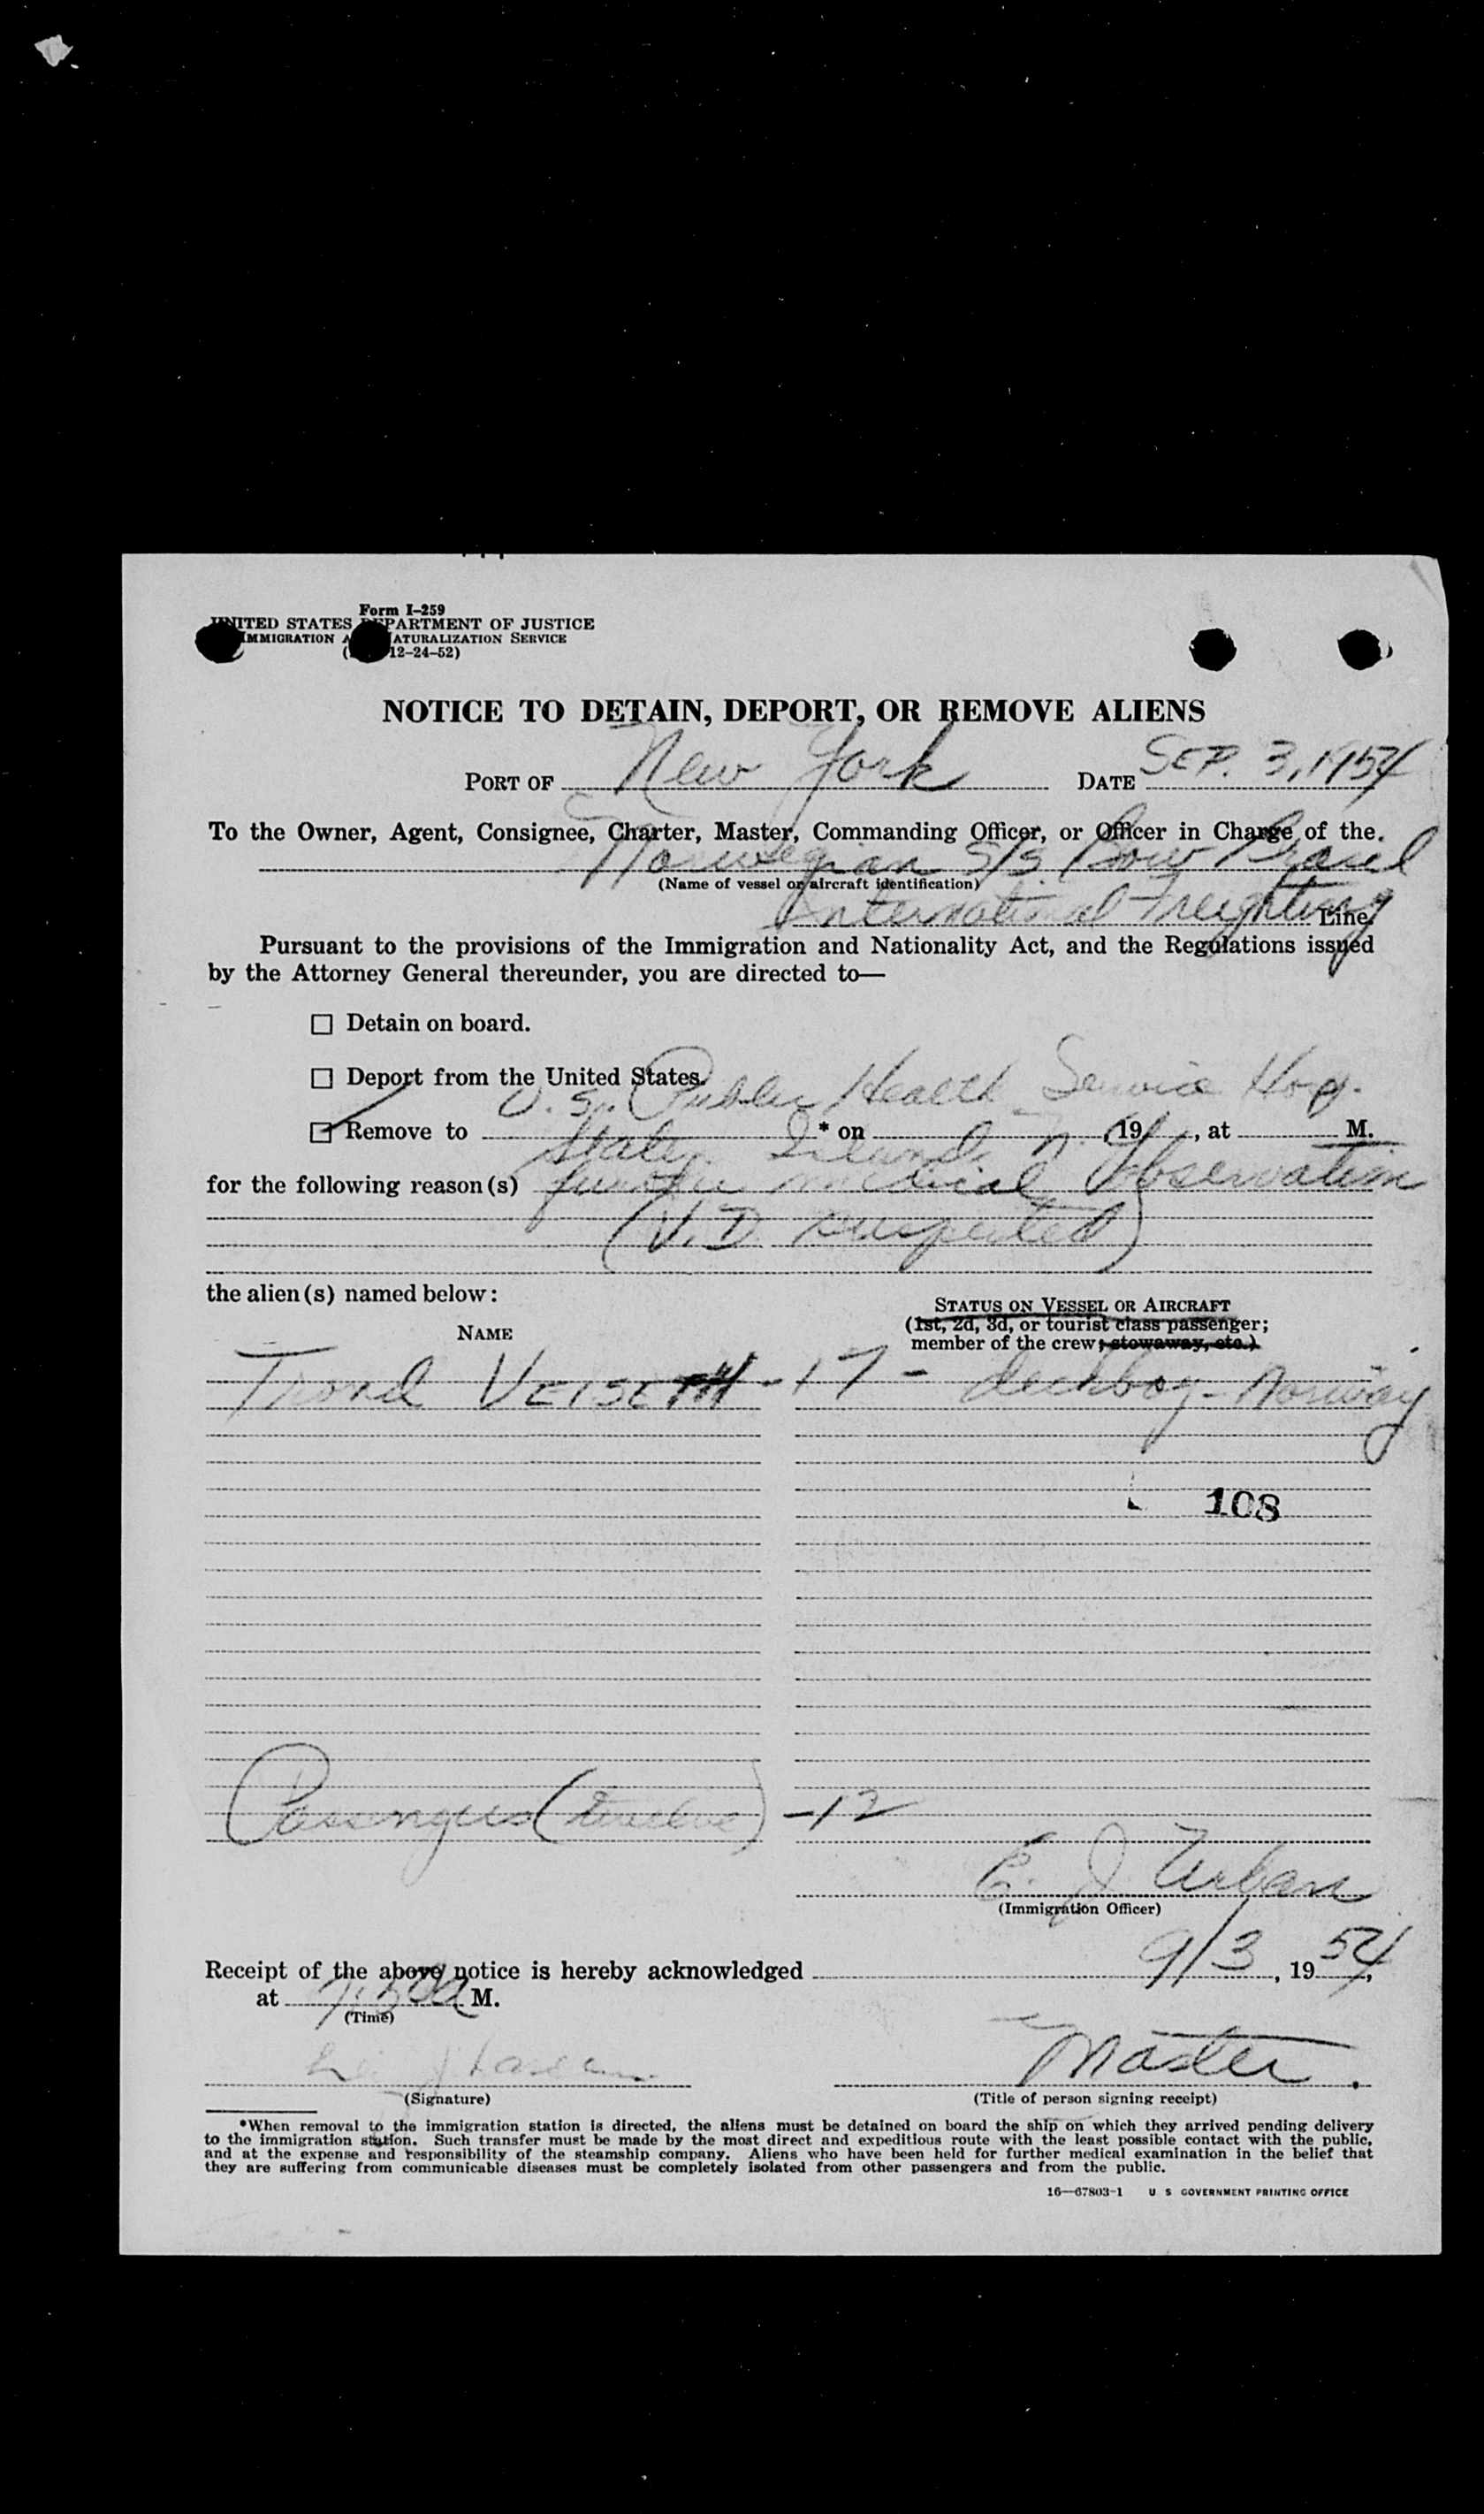 Form I-259
UNITED STATES DEPARTMENT OF JUSTICE
IMMIGRATION NATURALIZATION SERVICE
12-24-52)
NOTICE TO DETAIN, DEPORT, OR REMOVE ALIENS
PORT OF New York DATE SEP. 3, 1954
To the Owner, Agent, Consignee, Charter, Master, Commanding Officer, or Officer in Charge of the.
Norwegian S/S Bow Brasil
(Name of vessel or aircraft identification)
International Freighting Line
Pursuant to the provisions of the Immigration and Nationality Act, and the Regulations issued
by the Attorney General thereunder, you are directed to—
☐ Detain on board.
☐ Deport from the United States.
U. S. Public Health Service Hosp.
☐ Remove to * on , 19 , at M.
Staten Island, N.
for the following reason(s) further medical Observation
(V.D. suspected)
the alien(s) named below:
STATUS ON VESSEL OR AIRCRAFT
(1st, 2d, 3d, or tourist class passenger;
NAME
member of the crew; stowaway, etc.)
Trond VEISETH - 17 - deckboy - Norway
108
Passengers (twelve) - 12
E. J. Urban
(Immigration Officer)
Receipt of the above notice is hereby acknowledged 9/3, 1954,
at M.
(Time)
Master.
(Signature) (Title of person signing receipt)
*When removal to the immigration station is directed, the aliens must be detained on board the ship on which they arrived pending delivery
to the immigration station. Such transfer must be made by the most direct and expeditious route with the least possible contact with the public,
and at the expense and responsibility of the steamship company. Aliens who have been held for further medical examination in the belief that
they are suffering from communicable diseases must be completely isolated from other passengers and from the public.
16—67803-1 U S GOVERNMENT PRINTING OFFICE